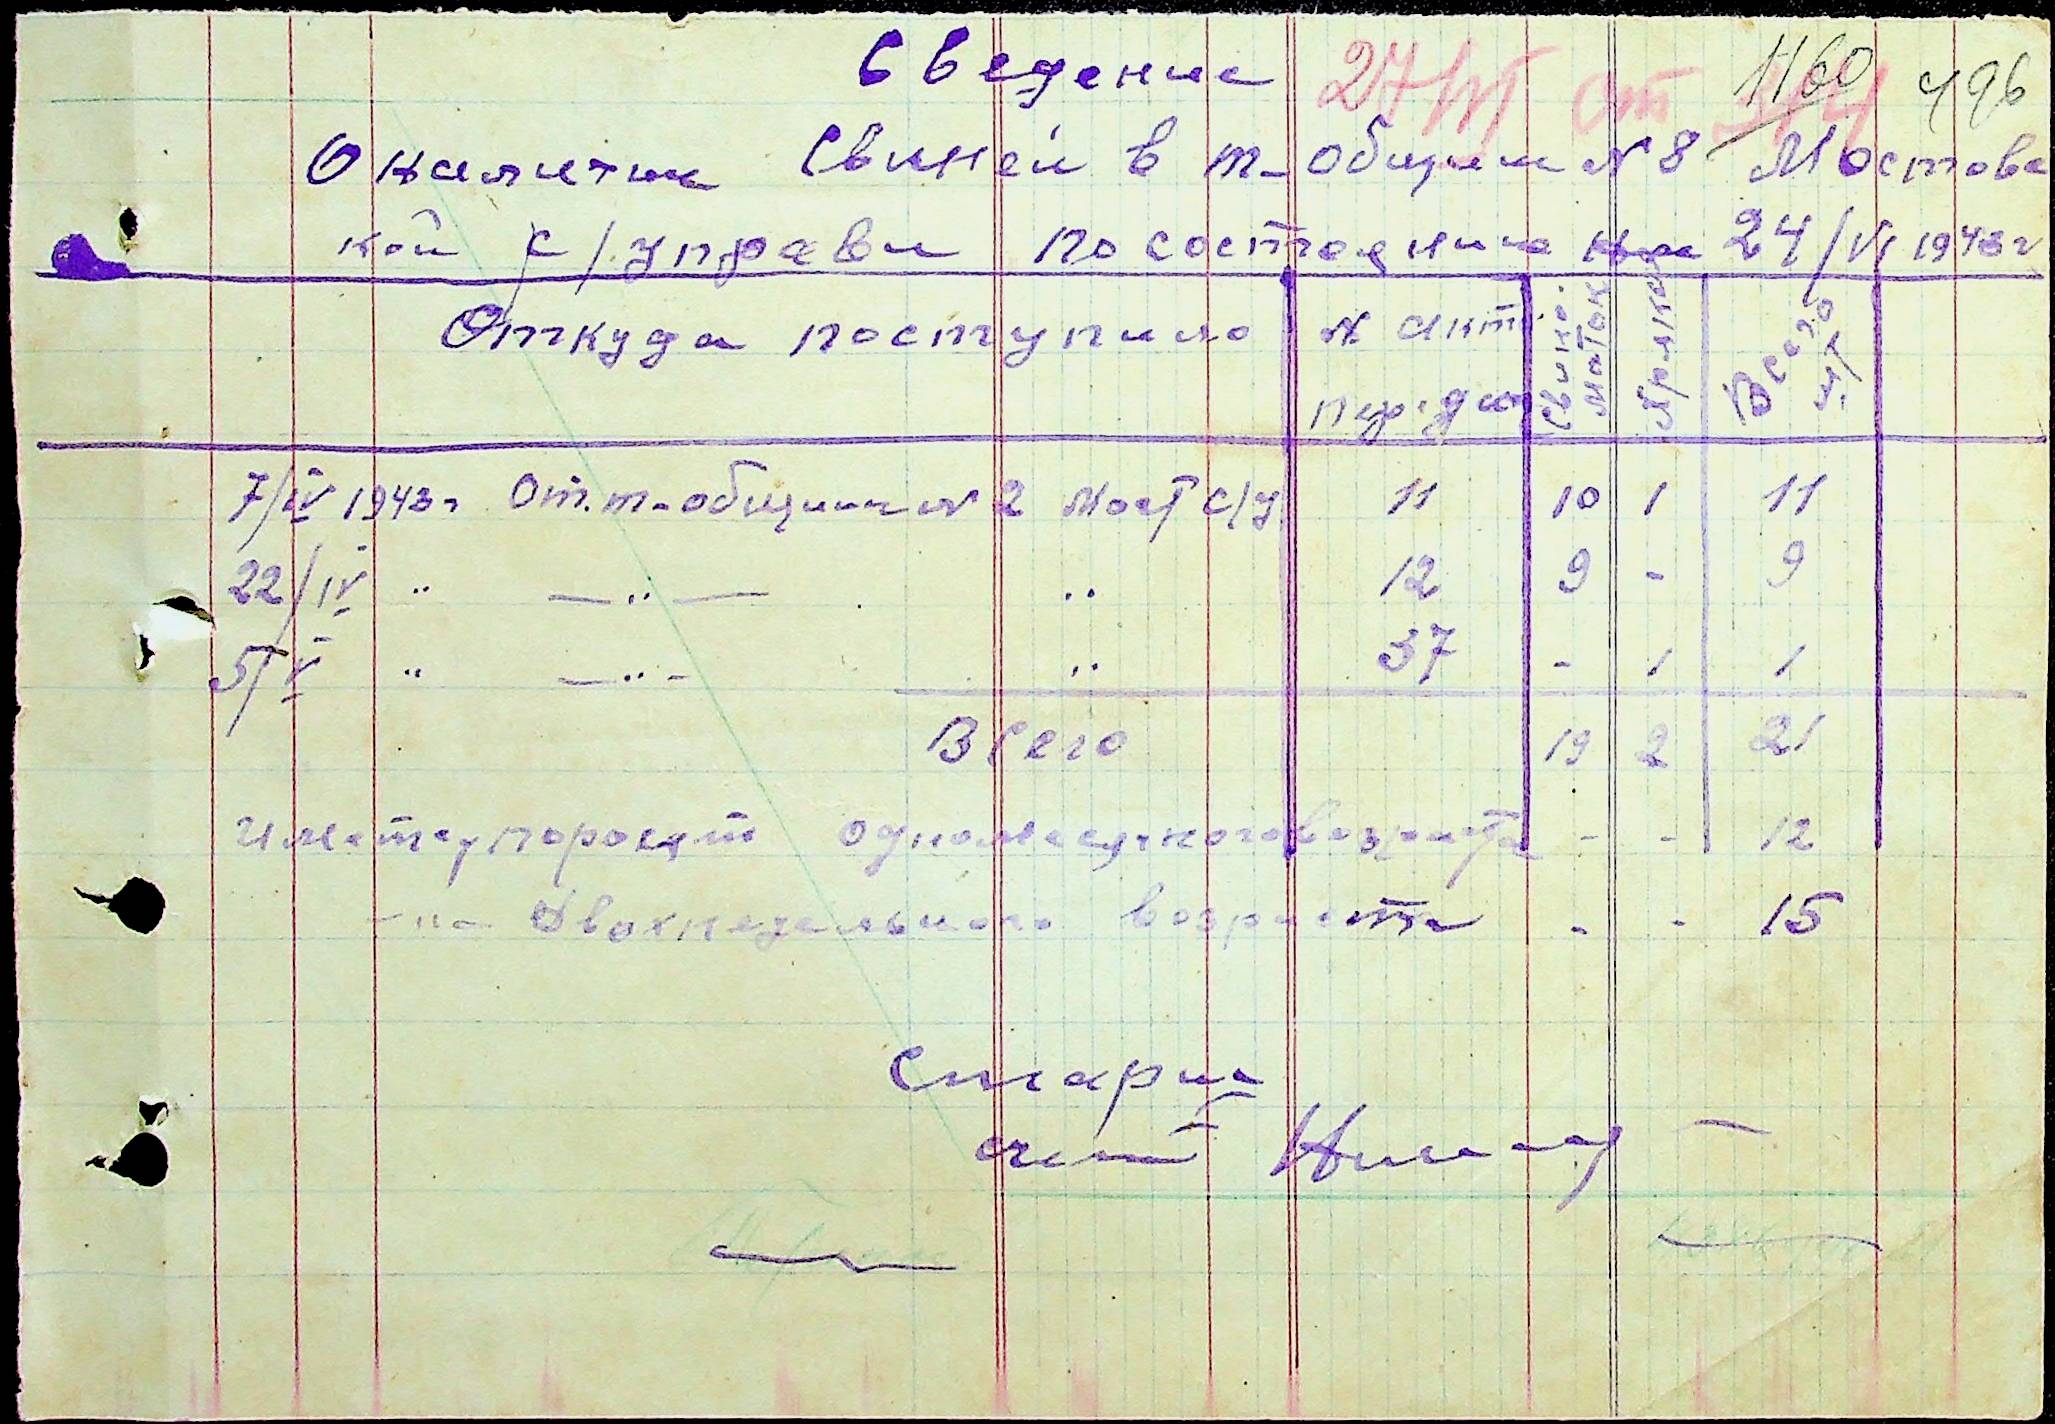 Сведение
1160 496
О налични свиней в т-общини N 8 Мостовс
кой с/управи по состоянию на 24/VI 1943 г
Откуда поступило N акт. перед. Свино. маток Ярлки Всего шт
7/IV 1943 г От. т-общини N 2 Мост с/у 11 10 1 11
22/IV " —"— " 12 9 - 9
5/V " —"- " 37 - 1 1
Всего 19 2 21
Имеетця поросят одномесячного возраста - - 12
-"- Двохнедельного возраста - - 15
Стариш
счет